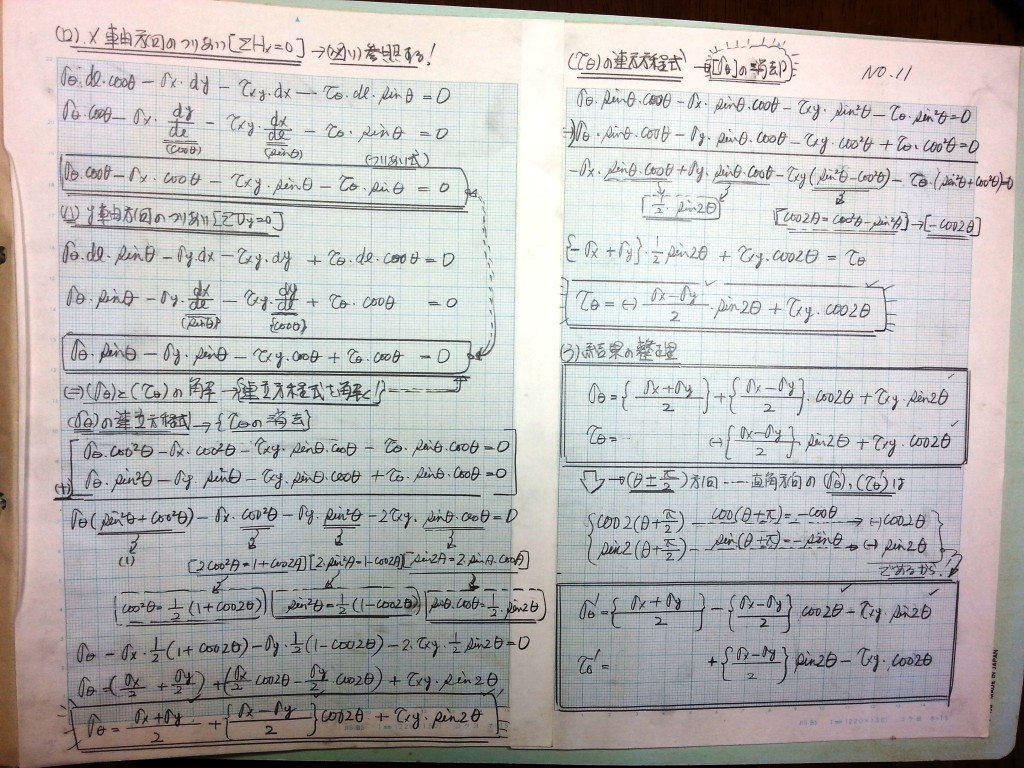 (2). X軸方向のつりあい[ΣHx=0] →(図1)参照する!
σθ・dl・cosθ − σx・dy − τxy・dx − τθ・dl・sinθ = 0
σθ・cosθ − σx・dy/dl − τxy・dx/dl − τθ・sinθ = 0
(cosθ) (sinθ) (つりあい式)
σθ・cosθ − σx・cosθ − τxy・sinθ − τθ・sinθ = 0
y軸方向のつりあい[ΣVy=0]
σθ・dl・sinθ − σy・dx − τxy・dy + τθ・dl・cosθ = 0
σθ・sinθ − σy・dx/dl − τxy・dy/dl + τθ・cosθ = 0
(sinθ) (cosθ)
σθ・sinθ − σy・sinθ − τxy・cosθ + τθ・cosθ = 0
(⇒)(σθ)と(τθ)の解 →{連立方程式を解く!}
(σθ)の連立方程式→{τθの消去}
σθ・cos²θ − σx・cos²θ − τxy・sinθ・cosθ − τθ・sinθ・cosθ = 0
(+) σθ・sin²θ − σy・sin²θ − τxy・sinθ・cosθ + τθ・sinθ・cosθ = 0
σθ(sin²θ+cos²θ) − σx・cos²θ − σy・sin²θ − 2τxy・sinθ・cosθ = 0
(1)
[2cos²A=1+cos2A] [2・sin²A=1−cos2A] [sin2A=2・sinA・cosA]
cos²θ=1/2(1+cos2θ) sin²θ=1/2(1−cos2θ) sinθ・cosθ=1/2・sin2θ
σθ − σx・1/2(1+cos2θ) − σy・1/2(1−cos2θ) − 2・τxy・1/2 sin2θ = 0
σθ = (σx/2 + σy/2) + (σx/2 cos2θ − σy/2 cos2θ) + τxy・sin2θ
σθ = σx+σy/2 + {σx−σy/2} cos2θ + τxy・sin2θ
(τθ)の連立方程式 →[σθ]の消去 NO.11
σθ・sinθ・cosθ − σx・sinθ・cosθ − τxy・sin²θ − τθ・sin²θ = 0
(−) σθ・sinθ・cosθ − σy・sinθ・cosθ − τxy・cos²θ + τθ・cos²θ = 0
−σx・sinθ・cosθ + σy・sinθ・cosθ − τxy(sin²θ−cos²θ) − τθ・(sin²θ+cos²θ) = 0
[1/2・sin2θ] [cos2θ=cos²θ−sin²θ]→[−cos2θ]
{−σx+σy}・1/2 sin2θ + τxy・cos2θ = τθ
τθ = (−) σx−σy/2・sin2θ + τxy・cos2θ
(3)結果の整理
σθ = {σx+σy/2} + {σx−σy/2}・cos2θ + τxy・sin2θ
τθ = … (−){σx−σy/2}・sin2θ + τxy・cos2θ
→(θ±π/2)方向……直角方向の(σθ'),(τθ')は
cos2(θ+π/2) − cos(θ+π)=−cosθ → (−)cos2θ
sin2(θ+π/2) − sin(θ+π)=−sinθ → (−)sin2θ
であるから!
σθ' = {σx+σy/2} − {σx−σy/2} cos2θ − τxy・sin2θ
τθ' = +{σx−σy/2} sin2θ − τxy・cos2θ
MADE IN JAPAN